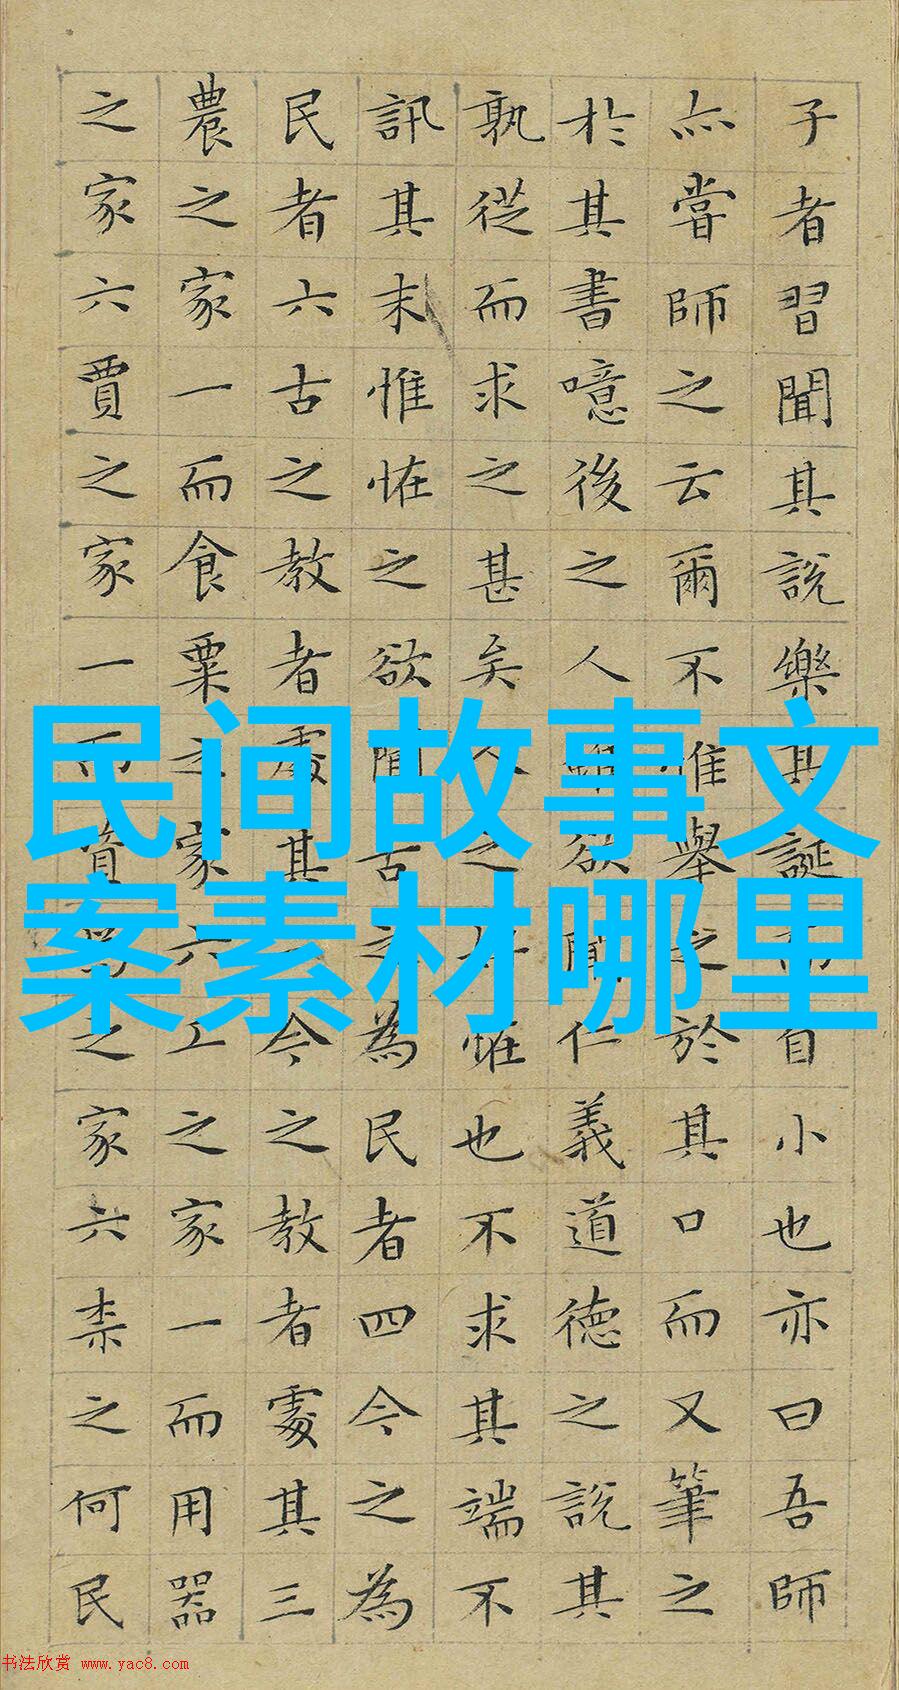 子者習聞其說樂其誕而自小也亦曰吾師
亦嘗師之云爾不惟舉之於其口而又筆之
於其書噫後之人雖欲聞仁義道德之說其
孰從而求之甚矣人之好恠也不求其端不
訊其末惟恠之欲聞古之為民者四今之為
民者六古之教者處其一今之教者處其三
農之家一而食粟之家六工之家一而用器
之家六賈之家一而資焉之家六柰之何民
民间故事文
案素材哪里
书法欣赏 www.yac8.com